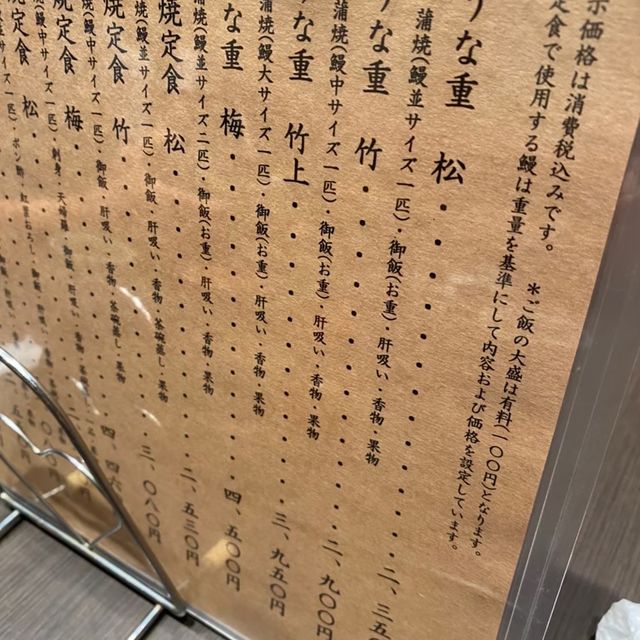 価格は消費税込みです。 ＊ご飯の大盛は有料(一〇〇円)となります。
定食で使用する鰻は重量を基準にして内容および価格を設定しています。
うな重 松・・・・・・・・・・二、三五
蒲焼(鰻並サイズ一匹)・御飯(お重)・肝吸い・香物・果物
な重 竹・・・・・・・・・・二、九〇〇円
蒲焼(鰻中サイズ一匹)・御飯(お重)・肝吸い・香物・果物
な重 竹上・・・・・・・・・・三、九五〇円
蒲焼(鰻大サイズ一匹)・御飯(お重)・肝吸い・香物・果物
な重 梅・・・・・・・・・・四、五〇〇円
蒲焼(鰻並サイズ二匹)・御飯(お重)・肝吸い・香物・果物
焼定食 松・・・・・・・・・・二、五三〇円
(鰻並サイズ一匹)・御飯・肝吸い・香物・茶碗蒸し・果物
焼定食 竹・・・・・・・・・・三、〇八〇円
(鰻中サイズ一匹)・御飯・肝吸い・香物・茶碗蒸し・果物
焼定食 梅・・・・・・・・・・四、四六
刺身・天婦羅・御飯・肝吸い・香物
定食 松
ポン酢・紅葉おろし・御飯